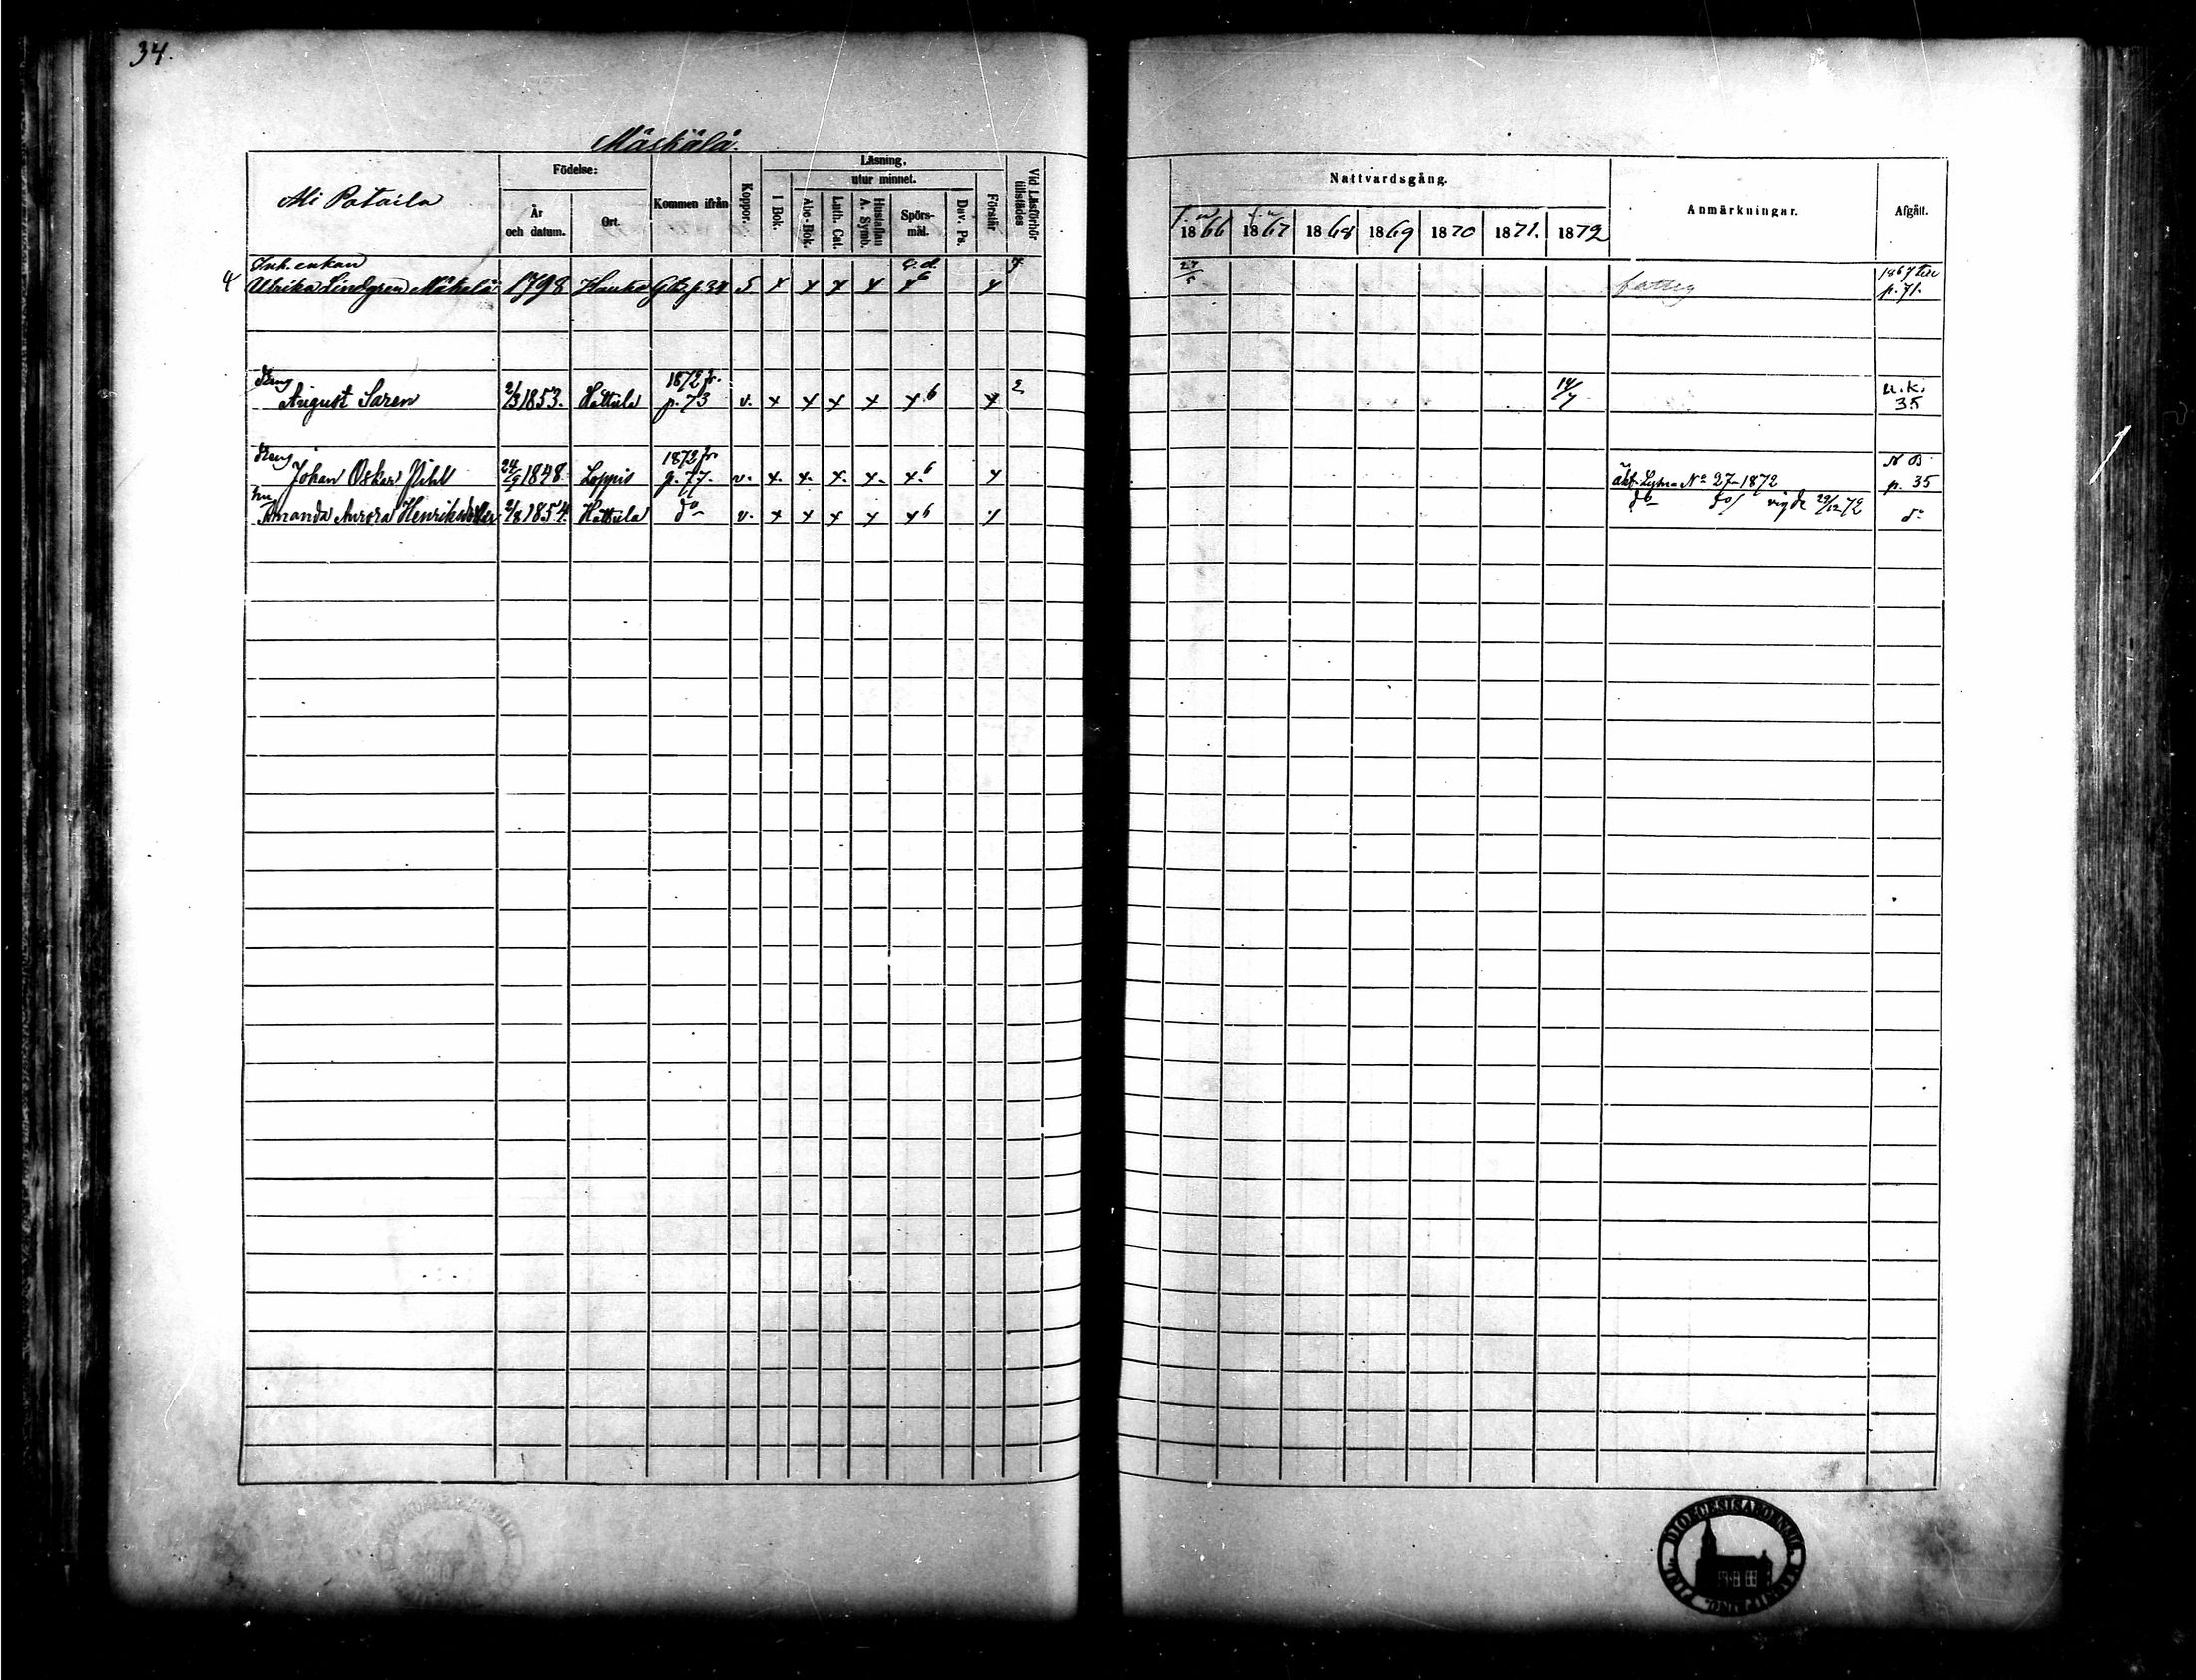 34.
Mäskälä.
Ali Pataila
Födelse:
År och datum.
Ort.
Kommen ifrån
Koppor.
Läsning.
utur minnet.
I Bok.
Abc-Bok.
Luth. Cat.
Hustaflan A. Symb.
Spörsmål.
Dav. Ps.
Förstår
Vid Läsförhör tillstädes
Nattvardsgång.
1866 1867 1868 1869 1870 1871. 1872
Anmärkningar.
Afgått.
Inh. enkan
4 Ulrika Lindgren Mäkelä 1798 Hauho GB p 34 S x x x x x 6 x 27/5 fattig 1867 till p. 71.
Dreng
August Saren 2/3 1853. Hattula 1872 fr. p. 73 v. x x x x x 6 x 2 14/7 u.k. 35
Dreng
Johan Oskar 24/9 1848. Loppis 1872 fr. p. 77. v. x. x. x. x. x. 6 x No 27 1872 N B p. 35
hu
Amanda Aurora Henriksdotter 2/8 1854. Hattula do v. x x x x x 6 x do do vigde 29/12 72 do
DIOECESIS ABOENSIS